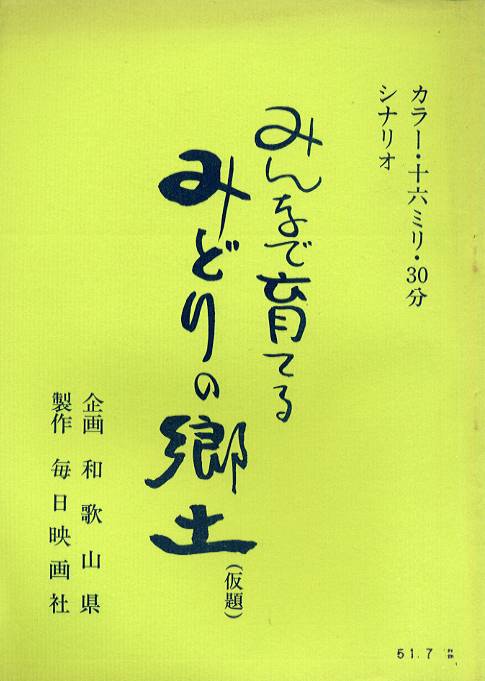 カラー・十六ミリ・30分
シナリオ
みんなで育てる
みどりの郷土
(仮題)
企画 和歌山県
製作 毎日映画社
51.7